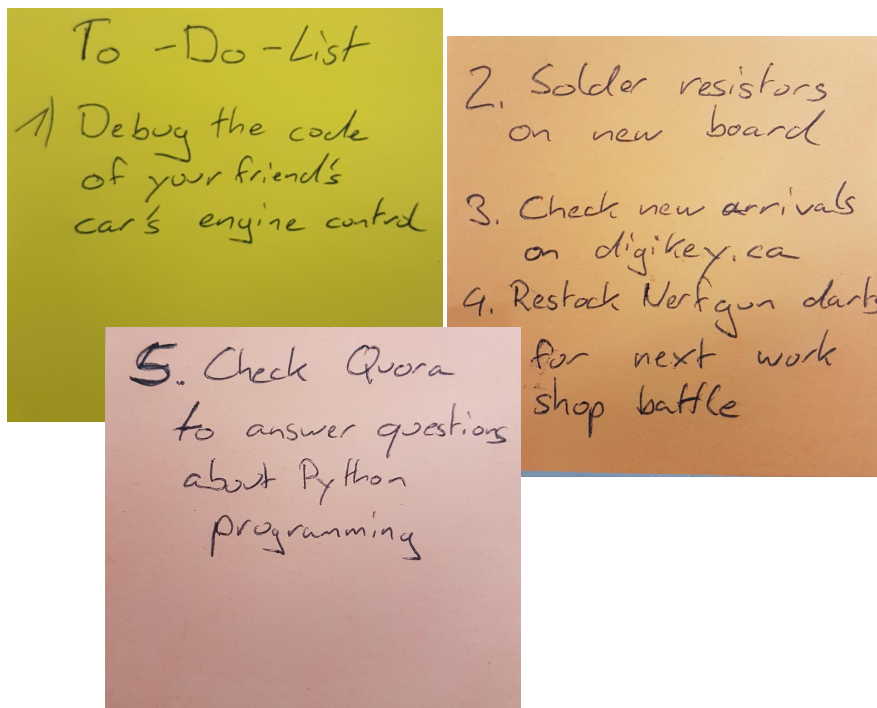 To-Do-List
1) Debug the code
of your friend's
car's engine control
2. Solder resistors
on new board
3. Check new arrivals
on digikey.ca
4. Restock Nerfgun darts
for next work
shop battle
5. Check Quora
to answer questions
about Python
programming